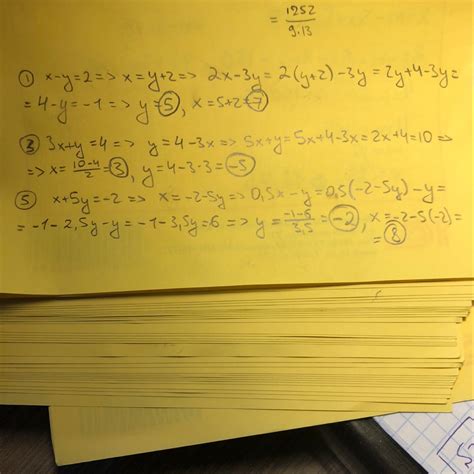 = 1252/9.13
① x-y=2 => x=y+2 => 2x-3y = 2(y+2)-3y = 2y+4-3y =
= 4-y = -1 => y=5, x=5+2=7
② 3x+y=4 => y=4-3x => 5x+y=5x+4-3x=2x+4=10 =>
=> x=10-4/2=3, y=4-3·3=-5
⑤ x+5y=-2 => x=-2-5y => 0,5x-y=0,5(-2-5y)-y=
= -1-2,5y-y=-1-3,5y=6 => y=-1-6/3,5=-2, x=-2-5(-2)=
= 8